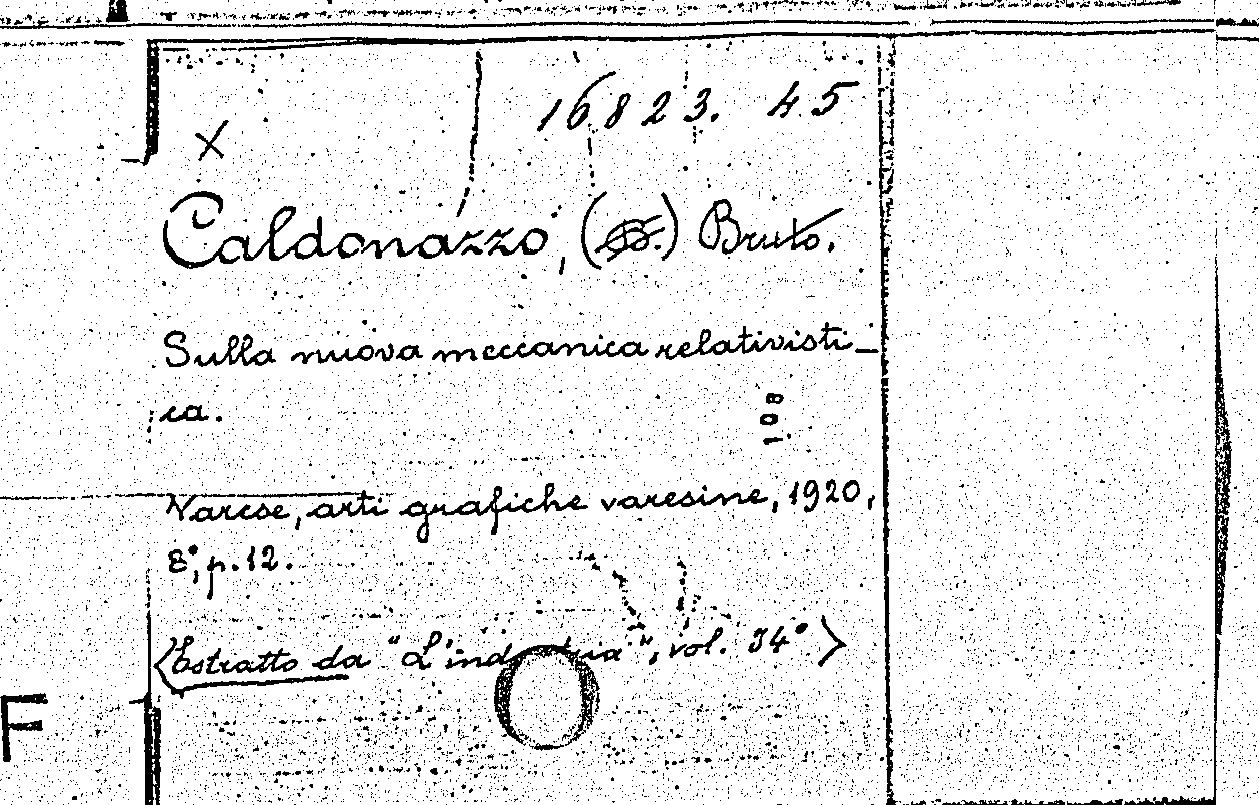 16823. 45
X
Caldonazzo, (B.) Bruto.
Sulla nuova meccanica relativisti_
ca.
108
Varese, arti grafiche varesine, 1920,
8°, p. 12.
<Estratto da "L'industria", vol. 34°>
O
F